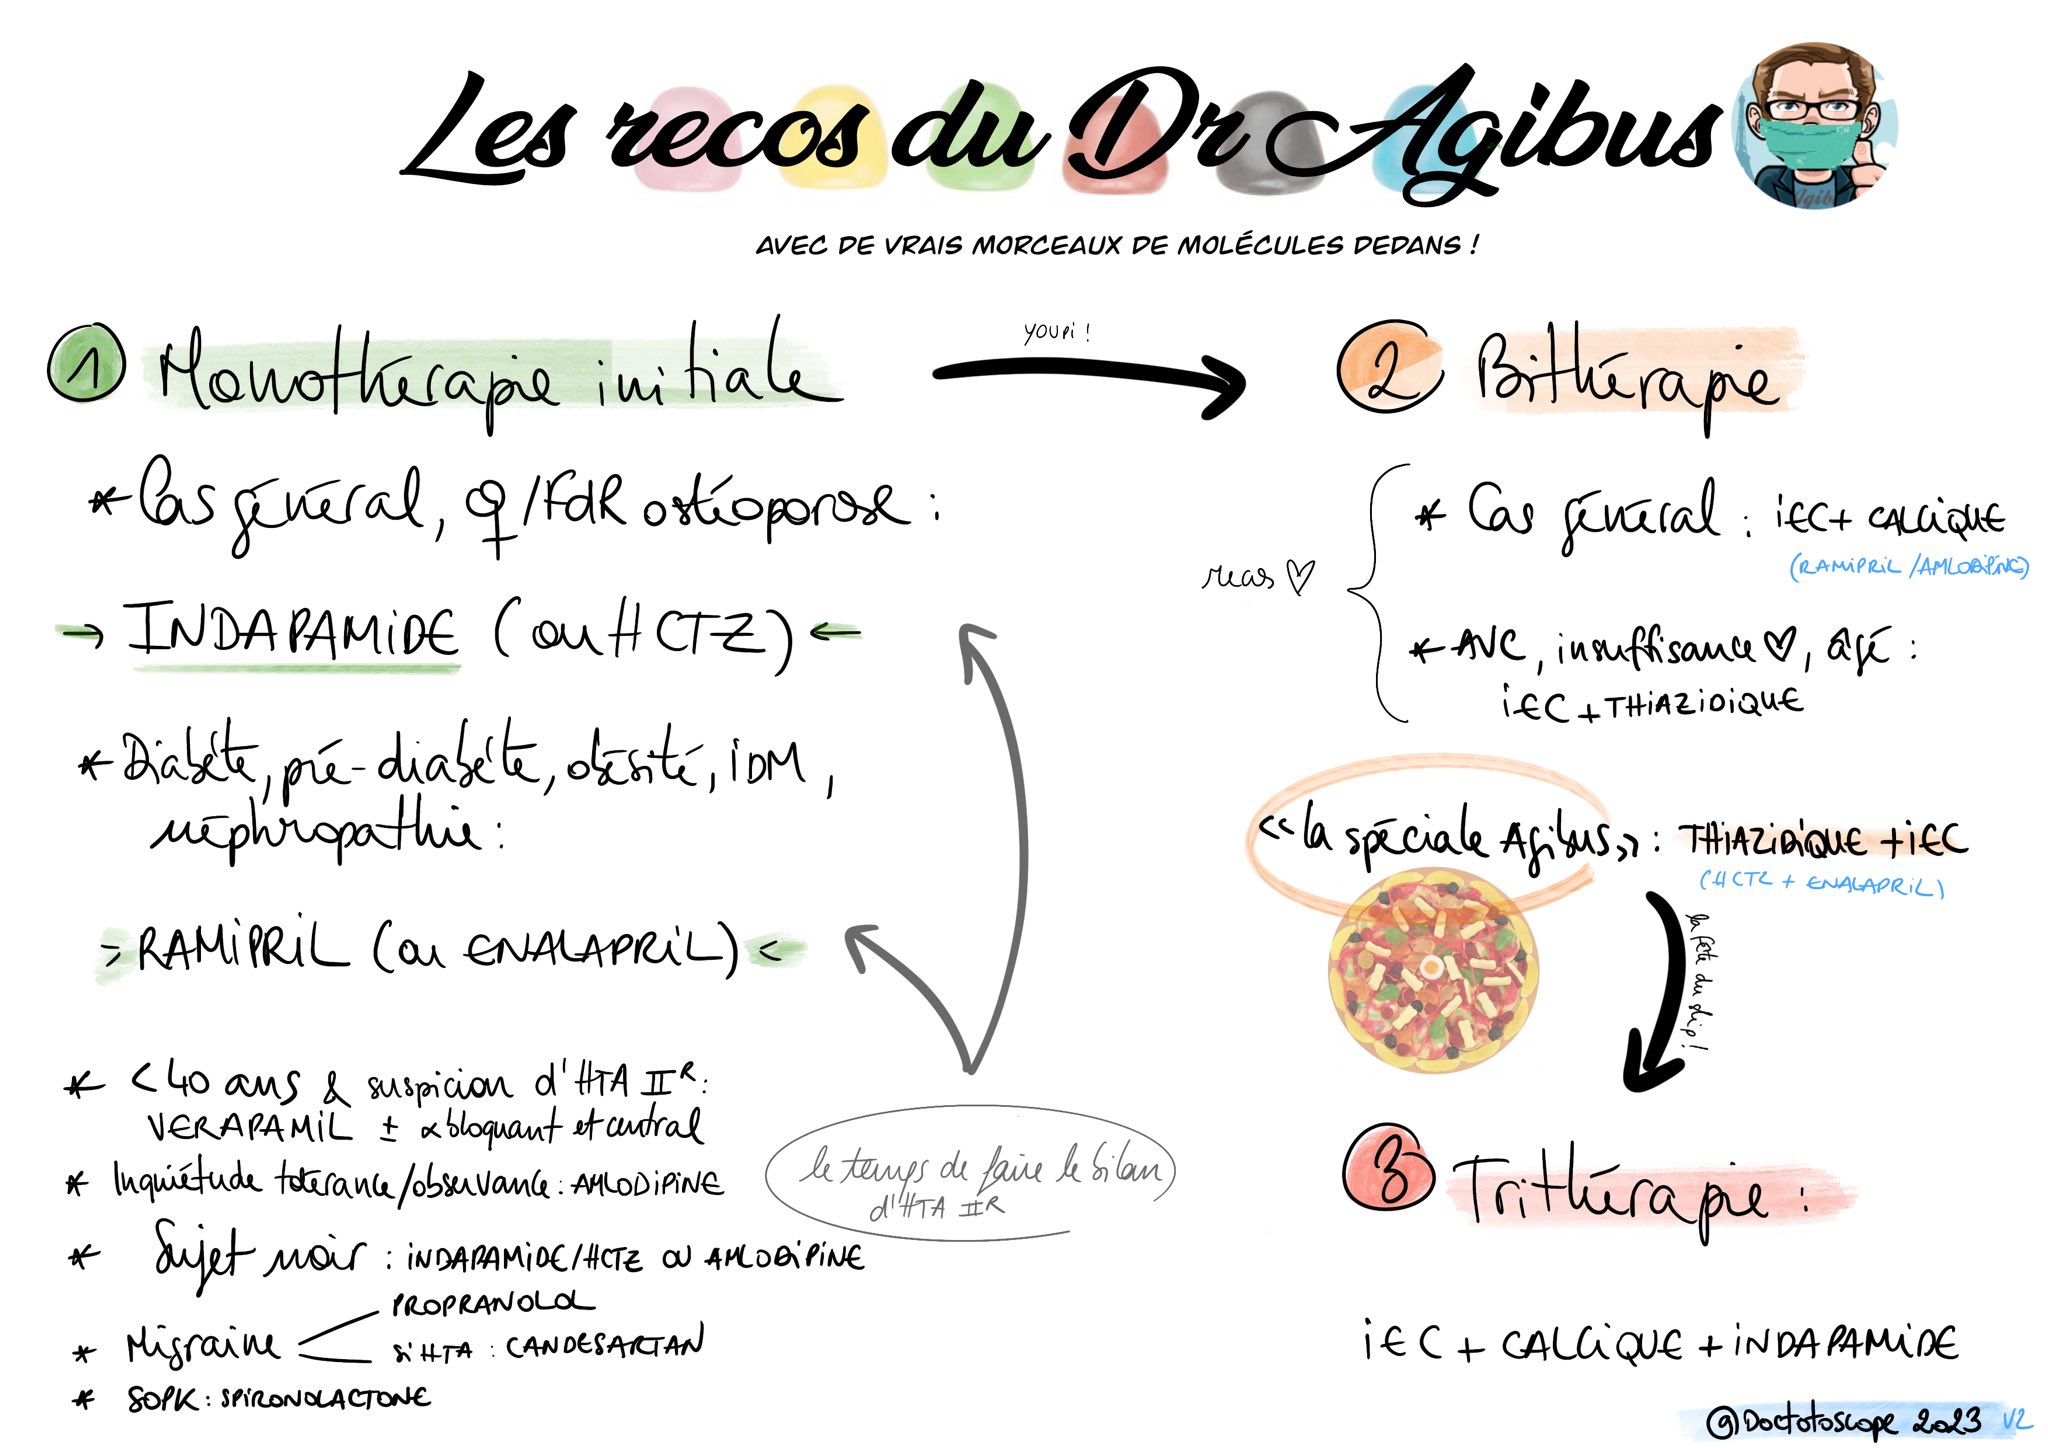 Les recos du Dr Agibus
AVEC DE VRAIS MORCEAUX DE MOLÉCULES DEDANS !
1 Monothérapie initiale
* Cas général, ♀/FdR ostéoporose :
→ INDAPAMIDE (ou HCTZ) ←
* Diabète, pré-diabète, obésité, IDM,
néphropathie :
> RAMIPRIL (ou ENALAPRIL) <
* < 40 ans & suspicion d'HTA IIR :
VERAPAMIL ± α bloquant et central
* Inquiétude tolérance/observance : AMLODIPINE
* Sujet noir : INDAPAMIDE/HCTZ OU AMLODIPINE
* Migraine
PROPRANOLOL
si HTA : CANDESARTAN
* SOPK : SPIRONOLACTONE
le temps de faire le bilan
d'HTA IIR
YOUPI !
2 Bithérapie
recos ♡
* Cas général : IEC + CALCIQUE
(RAMIPRIL / AMLODIPINE)
* AVC, insuffisance ♡, âgé :
IEC + THIAZIDIQUE
<< la spéciale Agibus >> : THIAZIDIQUE + IEC
(HCTZ + ENALAPRIL)
la fête du slip !
3 Trithérapie :
IEC + CALCIQUE + INDAPAMIDE
@Doctotoscope 2023 V2